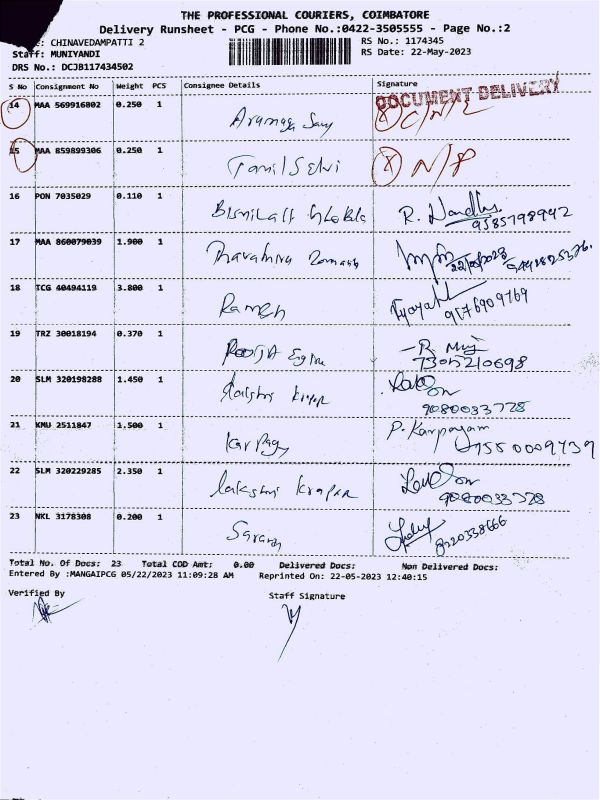 THE PROFESSIONAL COURIERS, COIMBATORE
Delivery Runsheet - PCG - Phone No.:0422-3505555 - Page No.:2
: CHINAVEDAMPATTI 2 RS No.: 1174345
Staff: MUNIYANDI RS Date: 22-May-2023
DRS No.: DCJB117434502
S No Consignment No Weight PCS Consignee Details Signature
DOCUMENT DELIVERY
14 MAA 569916802 0.250 1 Arumuga Samy
15 MAA 859899306 0.250 1 Tamil Selvi N/P
16 PON 7035029 0.110 1 R. Nandhu 9585798942
17 MAA 860079039 1.900 1 22/05/2023
18 TCG 40494119 3.800 1 Ramesh 9176909769
19 TRZ 30018194 0.370 1 Pooja R. 7305210698
20 SLM 320198288 1.450 1 9080033728
21 KMU 2511847 1.500 1 Karpagam P. Karpagam 7550009739
22 SLM 320229285 2.350 1 Lakshmi 9080033728
23 NKL 3178308 0.200 1 Saran 8220338666
Total No. Of Docs: 23 Total COD Amt: 0.00 Delivered Docs: Non Delivered Docs:
Entered By :MANGAIPCG 05/22/2023 11:09:28 AM Reprinted On: 22-05-2023 12:40:15
Verified By Staff Signature